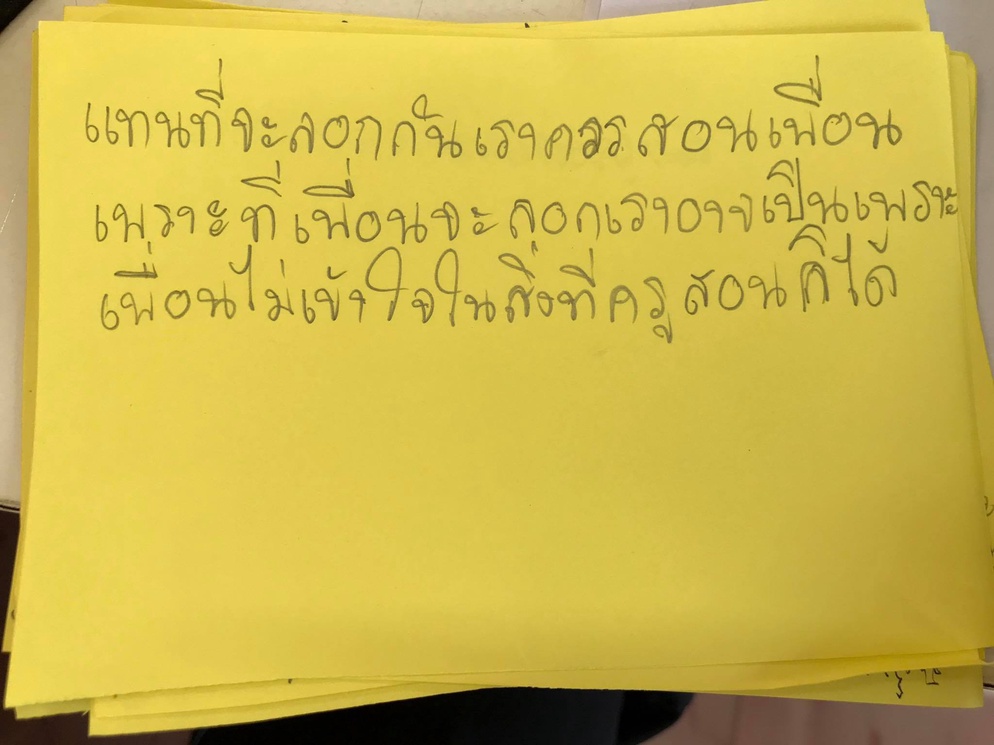 แทนที่จะลอกกันเราควรสอนเพื่อน
เพราะที่เพื่อนจะลอกเราอาจเป็นเพราะ
เพื่อนไม่เข้าใจในสิ่งที่ครูสอนก็ได้